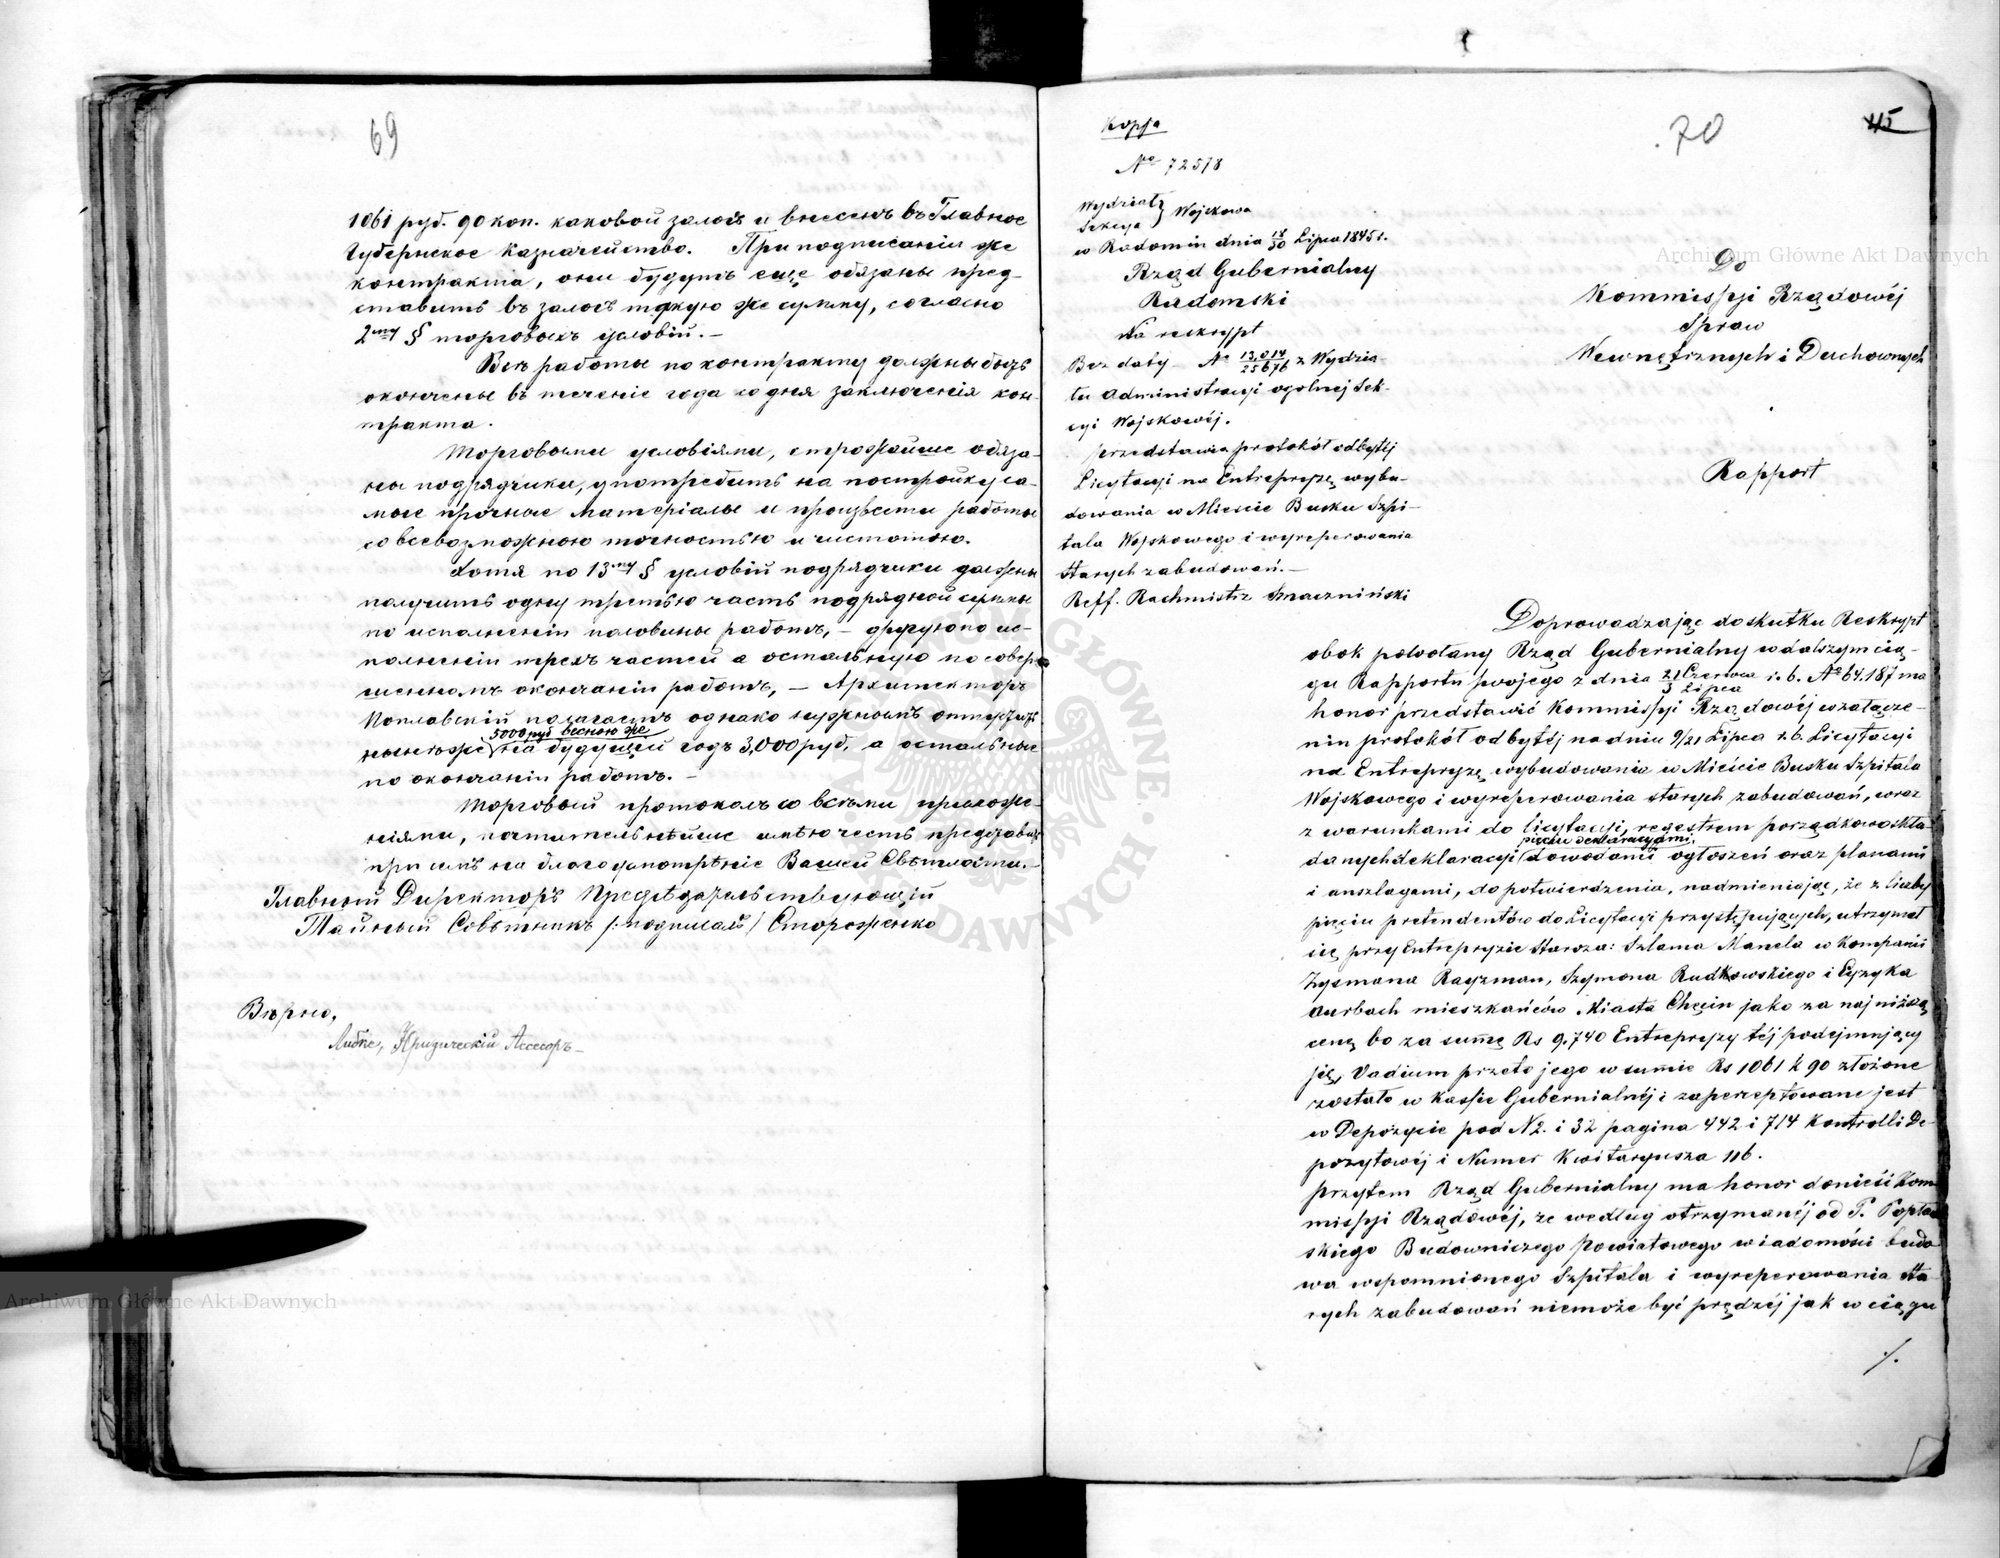 69
1061 руб. 90 коп. каковой залогъ и внесенъ въ Главное
Губернское Казначейство. При подписаніи же
контракта, они будутъ еще обязаны пред-
ставить въ залогъ такую же сумму, согласно
2му § торговыхъ условій. —
Всѣ работы по контракту должны быть
окончены въ теченіе года со дня заключенія кон-
тракта.
Торговыми условіями, строжайше обяза-
ны подрядчики, употребить на постройку са-
мые прочные матеріалы и произвести работы
со всевозможною точностью и чистотою.
Хотя по 13му § условій подрядчики должны
получить одну третью часть подрядной суммы
по исполненіи половины работъ, — другую по ис-
полненіи трехъ частей а остальную по совер-
шенномъ окончаніи работъ, — Архитекторъ
Поплавскій полагаетъ однако нужнымъ
5000 руб. весною же
на будущей годъ 3,000 руб. а остальные
по окончаніи работъ. —
Торговый протоколъ со всѣми приложе-
ніями, почтительнѣйше имѣю честь представить
при симъ на благоусмотрѣніе Вашей Свѣтлости. —
Главный Директоръ Предсѣдательствующій
Тайный Совѣтникъ /:подписалъ/ Стороженко
Вѣрно,
Юридическій Ассесоръ —
Kopja
No 72578
45
70
Wydział
Sekcya } Wojskowa
w Radomiu dnia 18/30 Lipca 1845 r.
Rząd Gubernialny
Radomski
Na reskrypt
Bez daty — No 13,014/25676 z Wydzia-
łu Administracyi ogólnej Sek-
cyi Wojskowéj.
przedstawia protokół odbytéj
Licytacyi na Entrepryzę wybu-
dowania w Mieście Busku Szpi-
tala Wojskowego i wyreperowania
starych zabudowań. —
Reff. Rachmistrz Smaczniński
Do
Kommissyi Rządowéj
Spraw
Wewnętrznych i Duchownych
Rapport
Doprowadzając do skutku Reskrypt
obok powołany Rząd Gubernialny w dalszym cią-
gu Rapportu swojego z dnia 21 Czerwca/3 Lipca r. b. No 64.187 ma
honor przedstawić Kommissyi Rządowéj w załącze-
niu protokół odbytéj na dniu 9/21 Lipca r. b. Licytacyi
na Entrepryzę wybudowania w Mieście Busku Szpitala
Wojskowego i wyreperowania starych zabudowań, wraz
z warunkami do licytacyi, regestrem porządkowo skła-
pięciu deklaracyami,
danych deklaracyi dowodami ogłoszeń oraz planami
i anszlagami, do potwierdzenia, nadmieniając, że z liczby
pięciu pretendentów do Licytacyi przystępujących, utrzymał
się przy Entrepryzie Staroza: Szlama Manela w Kompanii
Zysmana Rayzman, Szymona Rudkowskiego i Eyzyka
Aurbach mieszkańców Miasta Chęcin jako za najniższą
cenę bo za summę Rs 9.740 Entrepryzy téj podejmujący
się, Vadium przeto jego w summie Rs 1061 k 90 złożone
zostało w Kassie Gubernialnéj i zaperceptowane jest
w Depozycie pod N 2. i 32 pagina 442 i 714 Kontrolli De-
pozytowéj i Numer Kwitaryusza 116.
przytem Rząd Gubernialny ma honor donieść Kom-
missyi Rządowéj, że według otrzymanéj od P. Popław-
skiego Budowniczego Powiatowego wiadomości budo-
wa wspomnionego Szpitala i wyreperowania sta-
rych zabudowań niemoże być prędzéj jak w ciągu
./.
Archiwum Główne Akt Dawnych
Archiwum Główne Akt Dawnych